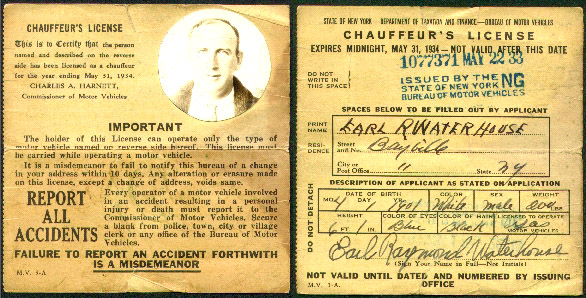 CHAUFFEUR'S LICENSE
This is to Certify that the person
named and described on the reverse
side has been licensed as a chauffeur
for the year ending May 31, 1934.
CHARLES A. HARNETT,
Commissioner of Motor Vehicles
IMPORTANT
The holder of this License can operate only the type of
motor vehicle named on reverse side hereof. This license must
be carried while operating a motor vehicle.
It is a misdemeanor to fail to notify this bureau of a change
in your address within 10 days. Any alteration or erasure made
on this license, except a change of address, voids same.
REPORT
ALL
ACCIDENTS
Every operator of a motor vehicle involved
in an accident resulting in a personal
injury or death must report it to the
Commissioner of Motor Vehicles. Secure
a blank from police, town, city or village
clerk or any office of the Bureau of Motor
Vehicles.
FAILURE TO REPORT AN ACCIDENT FORTHWITH
IS A MISDEMEANOR
M.V. 3-A.
STATE OF NEW YORK DEPARTMENT OF TAXATION AND FINANCE—BUREAU OF MOTOR VEHICLES
CHAUFFEUR'S LICENSE
EXPIRES MIDNIGHT, MAY 31, 1934—NOT VALID AFTER THIS DATE
1077371 MAY 22 33
DO NOT
WRITE IN
THIS SPACE
ISSUED BY THE NG
STATE OF NEW YORK
BUREAU OF MOTOR VEHICLES
SPACES BELOW TO BE FILLED OUT BY APPLICANT
PRINT
NAME
EARL R WATERHOUSE
RESI-
DENCE
Street
and No.
Bayville
City or
Post Office
"
State
NY
DESCRIPTION OF APPLICANT AS STATED ON APPLICATION
DO NOT DETACH
DATE OF BIRTH COLOR SEX WEIGHT
MO 4 1 1901 White male 200
HEIGHT COLOR OF EYES COLOR OF HAIR LICENSED TO OPERATE
6 FT 1 IN Blue Black
MOTOR VEHICLES
Earl Raymond Waterhouse
(Sign Your Name in Full—Not Initials)
NOT VALID UNTIL DATED AND NUMBERED BY ISSUING
OFFICE
M.V. 3-A.